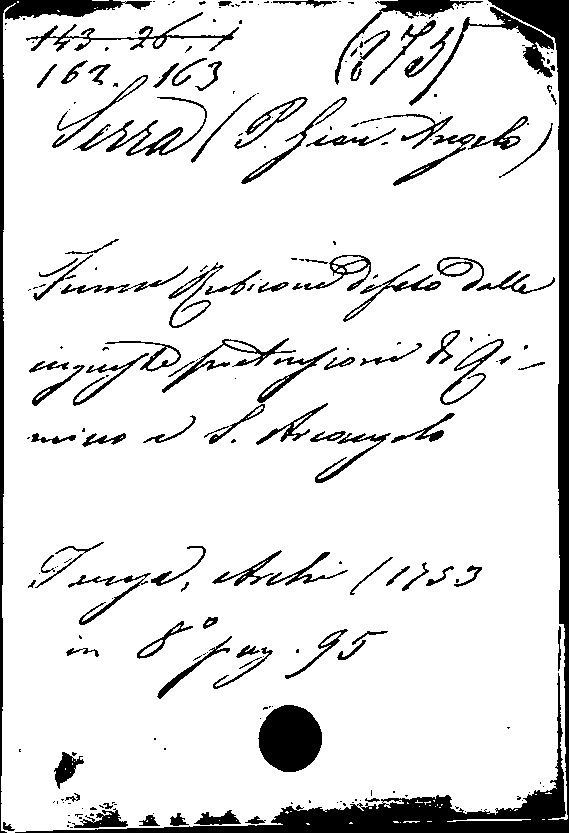 143. 26. 1
162. 163
(873)
Serra (P. Gian. Angelo)
Fiume Rubicone difeso dalle
ingiuste pretensioni di Ri-
mino e S. Arcangelo
Faenza, Archi (1753
in 8° pag. 95